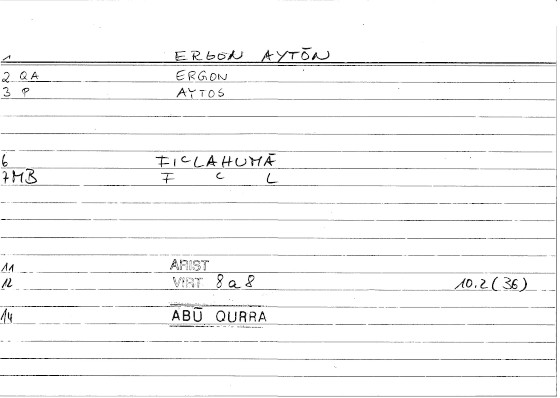 1 ERGON AYTŌN
2 QA ERGON
3 P AYTOS
6 FICLAHUMĀ
7MB F C L
11 ARIST
12 VIRT 8 a 8 10.2 (36)
14 ABŪ QURRA